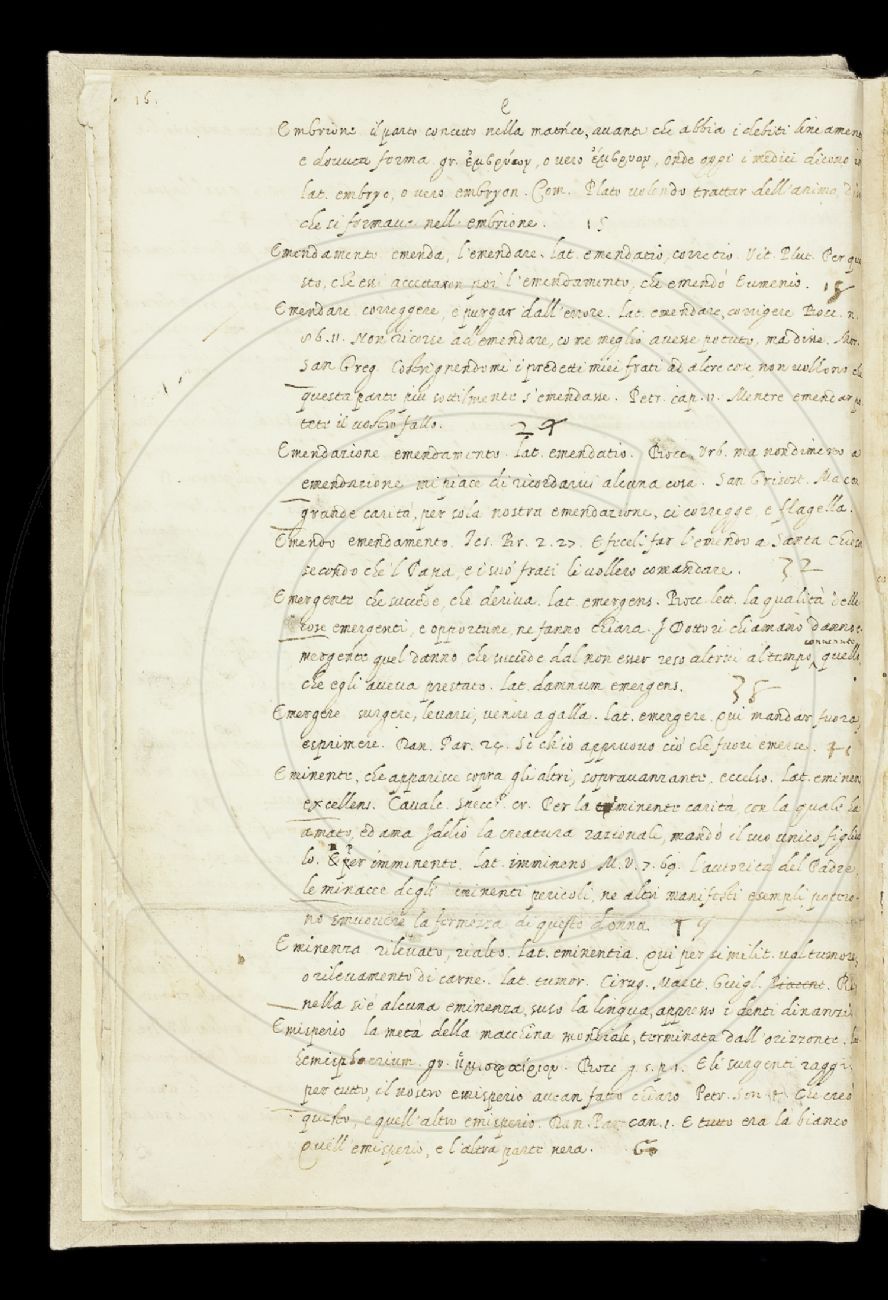 16.
e
Embrione il parto concetto nella matrice, avanti che abbia i debiti lineamen
e dovuta forma gr. ἐμβρύον, o vero ἔμβρυον, onde oggi i medici dicono in
lat. embryo, o vero embryon. Com. Plato volendo trattar dell'anima, di
che si formava nell'embrione. 15
Emendamento emenda, l'emendare. lat. emendatio, correctio. Vit. Plut. Per que
sto, che essi accettaron poi l'emendamento, che emendò Eumenio. 18
Emendare correggere, e purgar dall'errore. lat. emendare, corrigere Bocc. n.
86. 11. Non ricorse ad emendare, come meglio avesse potuto, ma disse. Mor.
San Greg. Costrignendomi i predetti miei frati ad altre cose, non vollono che
questa parte più sottilmente s'emendasse. Petr. cap. 11. Mentre emendar po
tete il vostro fallo. 29
Emendazione emendamento. lat. emendatio. Bocc. Urb. ma nondimeno a
emendazione mi piace di ricordarvi alcuna cosa. San Grisost. Ma con
grande carità, per sola nostra emendazione, ci corregge, e flagella.
Emendo emendamento. Tes. Br. 2. 27. E feceli far l'emendo a Santa Chiesa
secondo che 'l Papa, e i suo' frati le vollero comandare. 32
Emergente che succede, che deriva. lat. emergens. Bocc. lett. la qualità delle
cose emergenti, e opportune, ne fanno chiara. I Dottori chiamano danno e-
mergente quel danno che succede dal non esser reso altrui al tempo convenuto quello,
che egli aveva prestato. lat. damnum emergens. 38
Emergere surgere, levarsi, venire a galla. lat. emergere. Qui mandar fuora,
esprimere. Dan. Par. 24. Sì ch'io appruovo ciò che fuori emerse. 41
Eminente, che apparisce sopra gli altri, sopravanzante, eccelso. lat. eminen
excellens. Cavalc. Specc. cr. Per la eminente carità, con la quale ha
amato, ed ama Iddio la creatura razionale, mandò il suo unico figliuo
lo. & per imminente. lat. imminens M. V. 7. 69. l'autorità del Padre,
le minacce degli eminenti pericoli, ne altri manifesti esempli potero-
no smuovere la fermezza di questa donna. 49
Eminenza rilevato, rialto. lat. eminentia. Qui per similit. val tumore,
o rilevamento di carne. lat. tumor. Cirug. Maest. Guigl.
nella si è alcuna eminenza, suso la lingua, appresso i denti dinanzi
Emisperio la metà della macchina mondiale, terminata dall'orizzonte. la
hemisphaerium. gr. ἡμισφαίριον. Bocc. g. 5. p. 1. E li surgenti raggi
per tutto, il nostro emisperio avean fatto chiaro Petr. Son. 4. Che creò
questo, e quell'altro emisperio. Dan. Par. can. 1. E tutto era là bianco
Quell'emisperio, e l'altra parte nera. 60